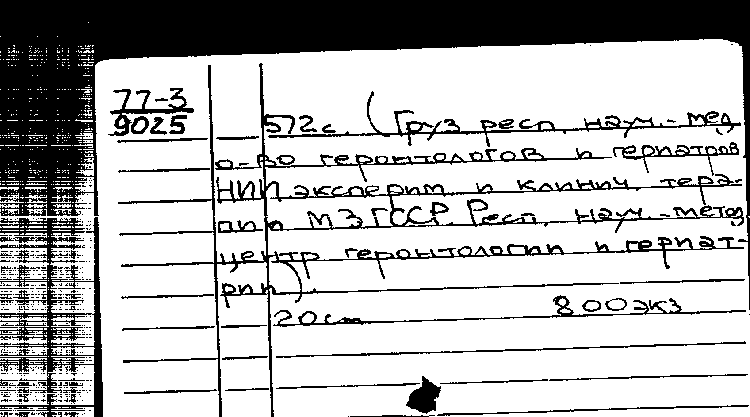 77-3
9025
572 с. (Груз респ. науч.-мед
о-во геронтологов и гериатров
НИИ эксперим и клинич. тера-
пии МЗ ГССР. Респ. науч.-метод
центр геронтологии и гериат-
рии).
20 см 800 экз